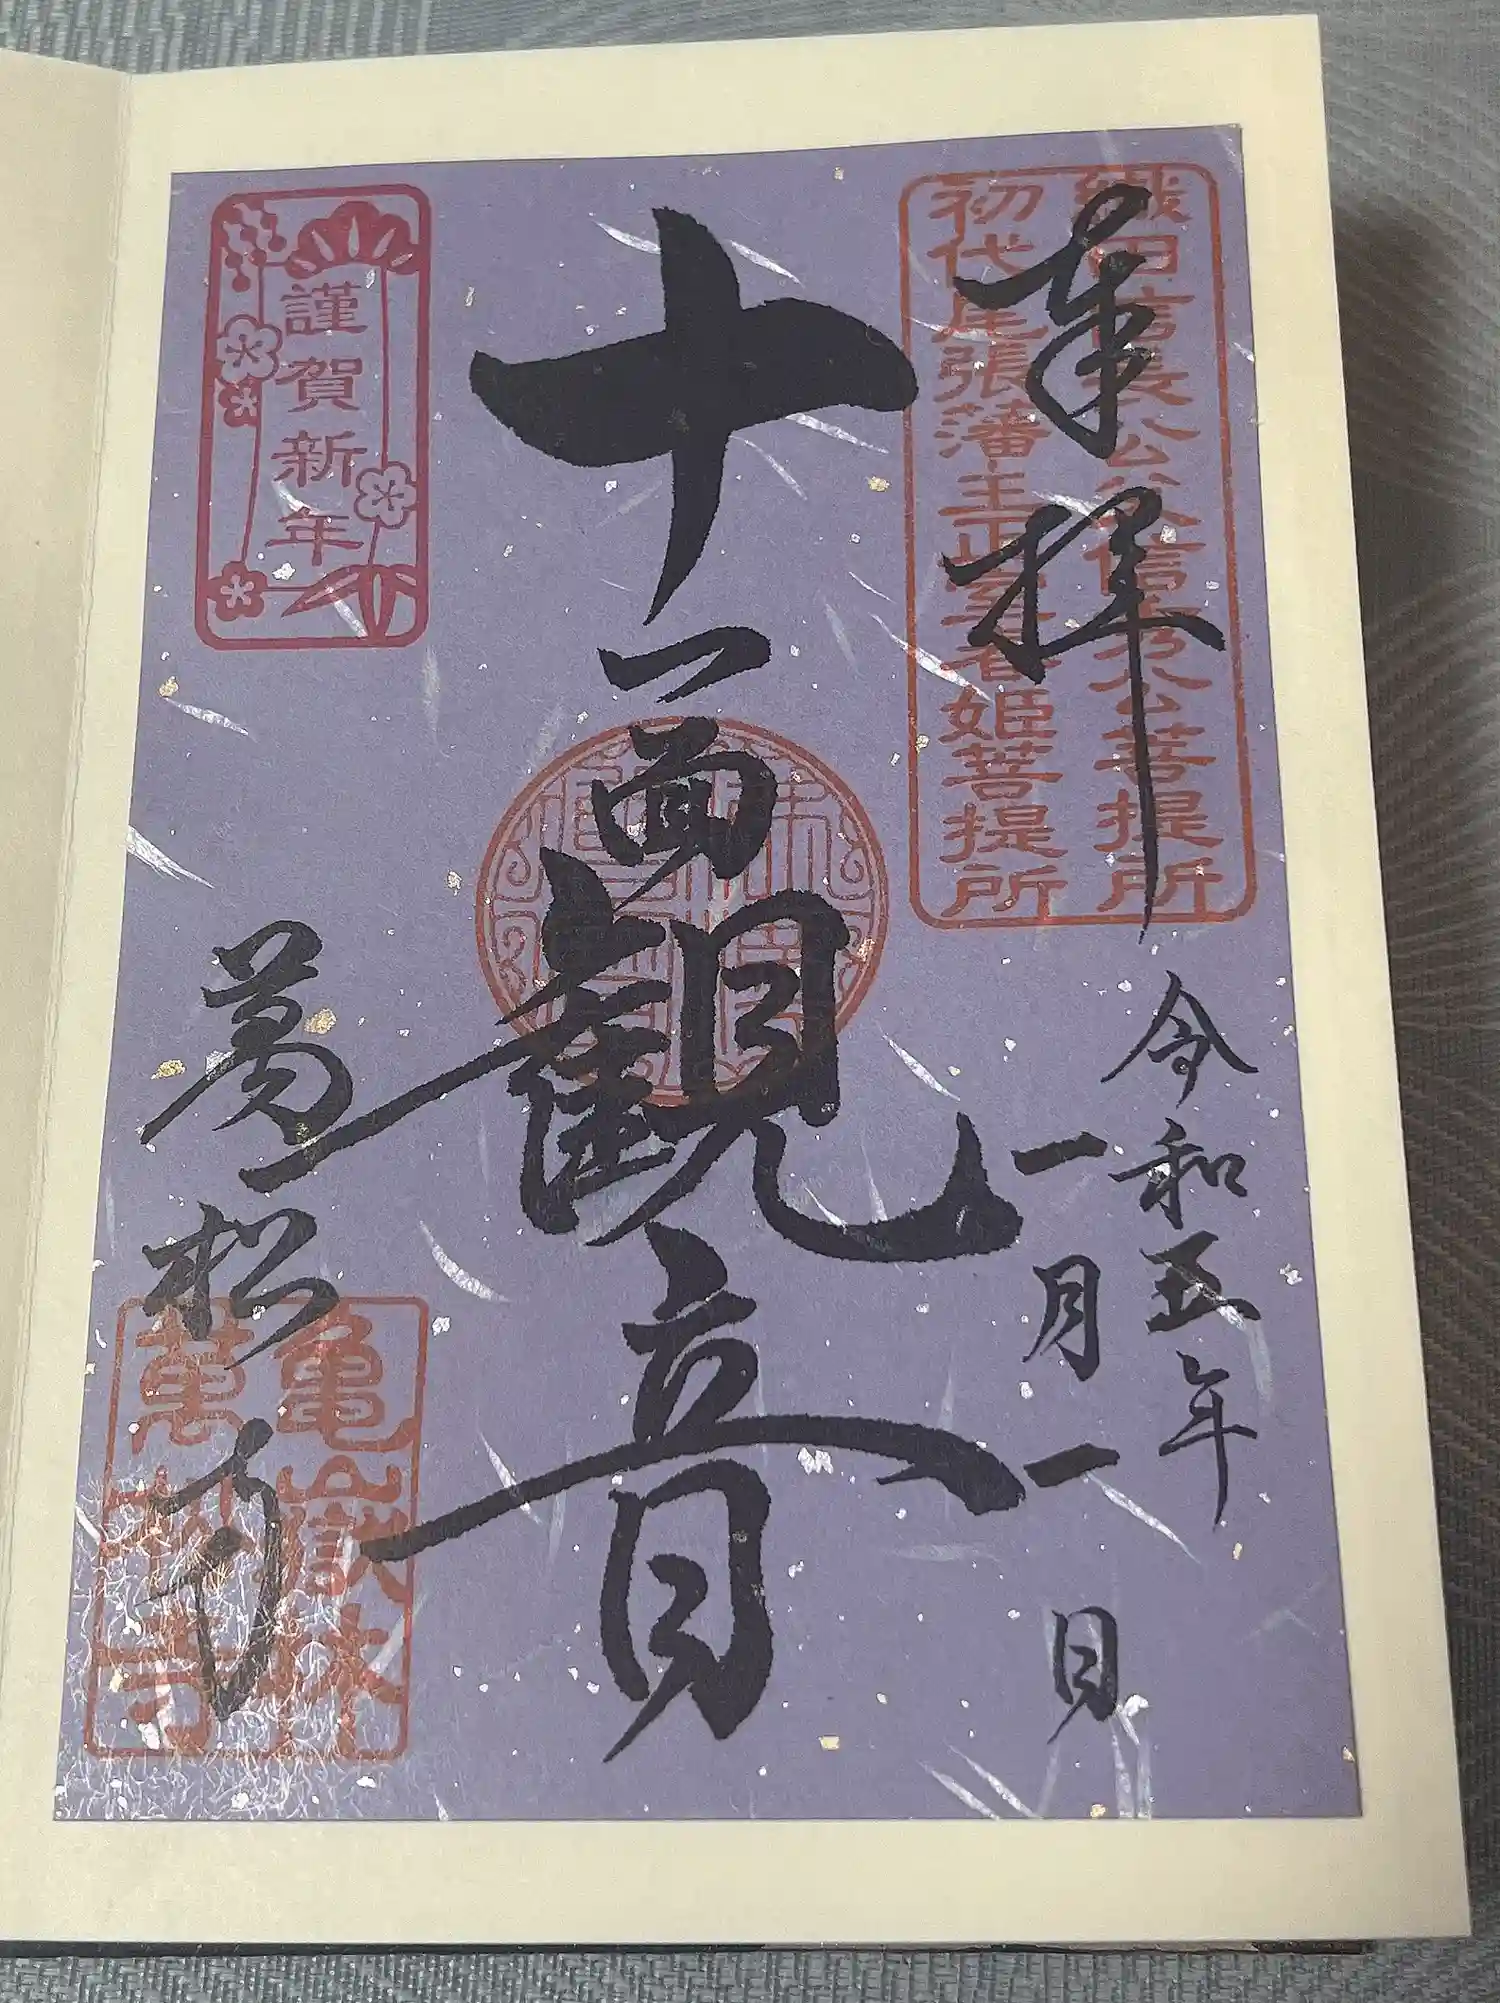 奉拝
織田信長公父信秀公菩提所
初代尾張藩主正室春姫菩提所
令和五年
一月一日
十一面観音
謹賀新年
萬松寺
亀嶽林
萬松寺